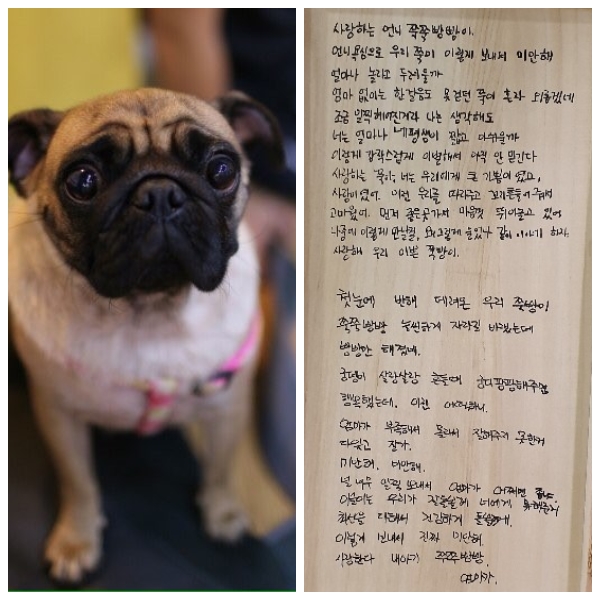 사랑하는 언니 쭉쭉빵빵이.
언니욕심으로 우리 쭉이 이렇게 보내서 미안해
얼마나 놀라고 두려울까
엄마 없이는 한걸음도 못 걷던 쭉이 혼자 외롭겠네
조금 일찍 헤어진거라 나는 생각해도
너는 얼마나 네평생이 짧고 아쉬울까
이렇게 갑작스럽게 이별해서 아직 안 믿긴다
사랑하는 쭉이는 우리에게 큰 기쁨이 였고,
사랑이였어. 이런 우리를 따라주고 꼬리흔들어줘서
고마웠어. 먼저 좋은곳가서 마음껏 뛰어놀고 있어
나중에 이렇게 만났길, 왜그렇게 같이 이야기 하자.
사랑해 우리 이쁜 쭉빵이.
첫눈에 반해 데려온 우리 쭉빵이
쭉쭉빵빵 늘씬하게 자라길 바랬는데
빵빵만 해졌네.
궁뎅이 살랑살랑 흔들며
행복했는데. 이젠
엄마가 부족해서 몰라서 잘해주지 못한거
다잊고 잘가.
미안해. 미안해.
널 너무 일찍 보내서 엄마가 어쩌면 좋니.
우리가 너에게 못해준거
최선을 다해서 건강하게 돌볼게.
이렇게 보내서 진짜 미안해.
사랑한다 내아기 쭉쭉빵빵.
엄마가.